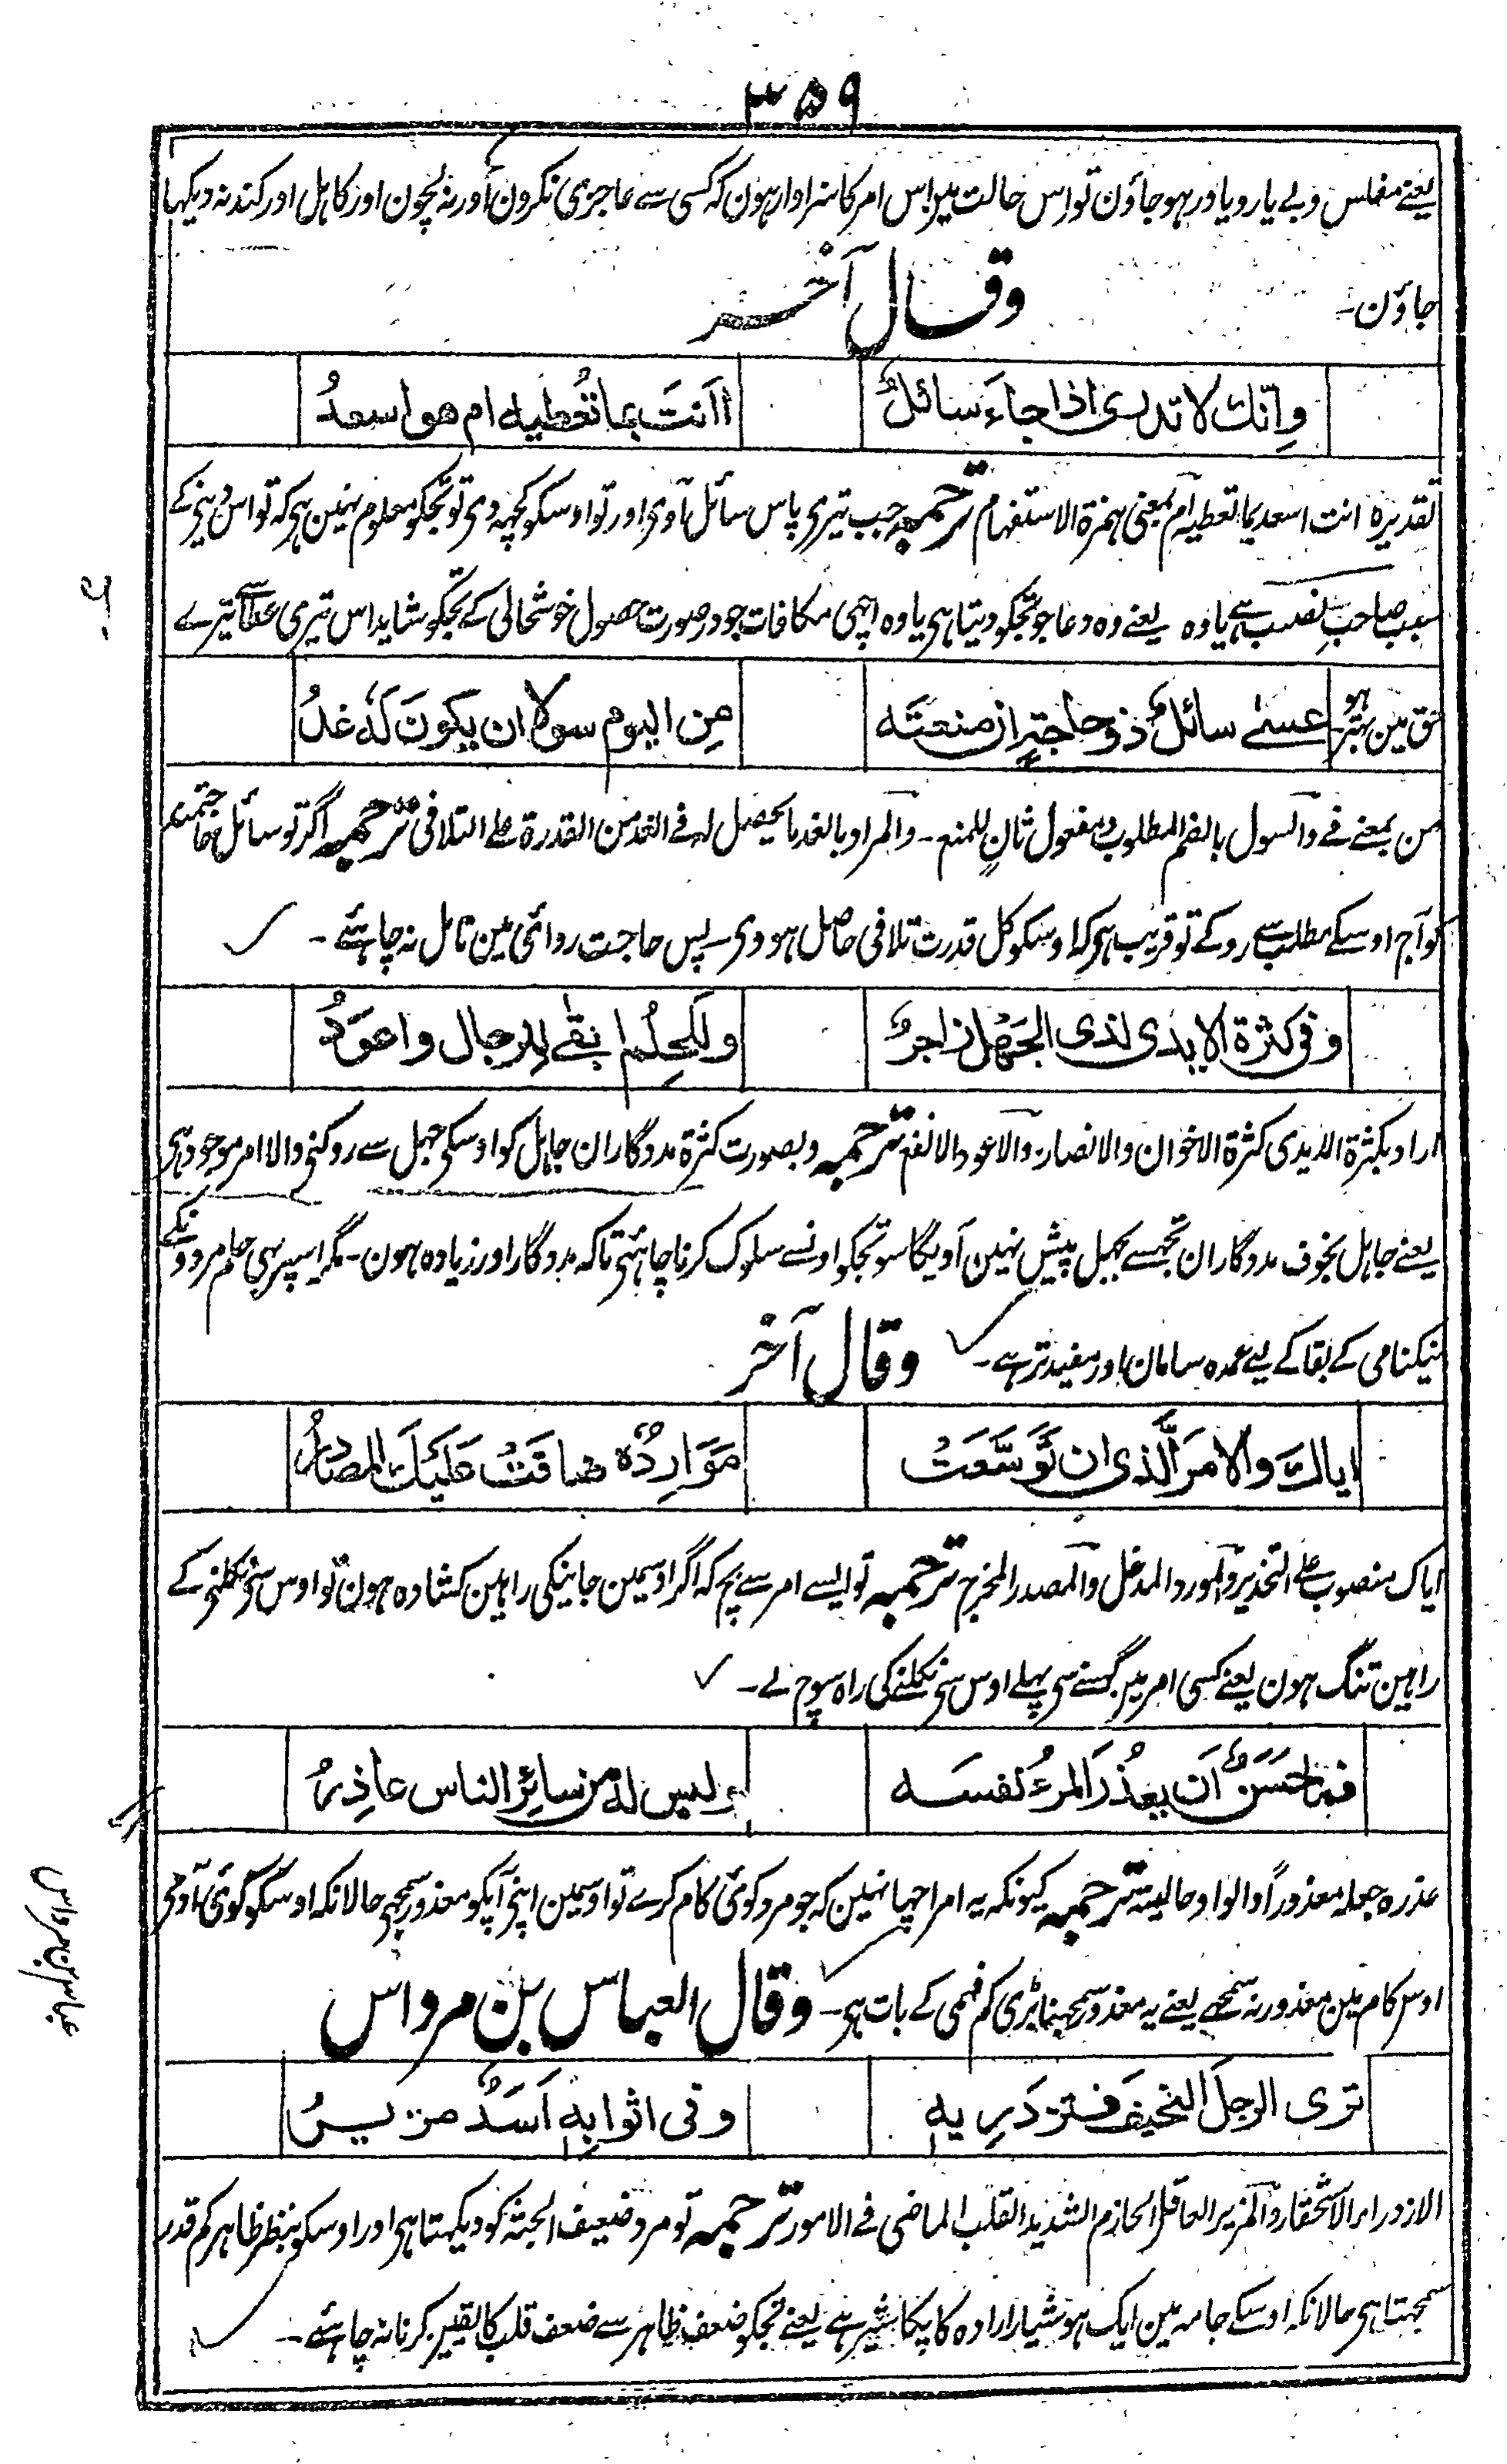 ۳۵۹
یعنے مفلس و بے یار و یاور ہو جاؤن تو اس حالت مین اس امر کا سزاوار ہون کہ کسی سے عاجزی نکرون اور نہ بچون اور کاہل اور کند نہ دیکہا
جاؤن۔ وقال آخر
وانّك لا تدرى اذا جاءَ سائلٌ أانتَ بما تُعطيه ام هو اسعدُ
تقدیرہ انت اسعد بما تعطیہ ام بمعنی ہمزۃ الاستفہام ترجمہ جب تیری پاس سائل آوی اور تو اوسکو کچہہ دی تو تجکو معلوم نہین ہی کہ تو اس دینی کے
سبب صاحب نصیب ہے یا وہ یعنے وہ دعا جو تجکو دیتا ہی یا وہ اچہی مکافات جو در صورت حصول خوشحالی کے تجکو شاید اس تیری عطا سے تیرے
حق مین بہتر ہو عسىٰ سائلٌ ذو حاجةٍ ان منعتَه مِن اليوم سولا ان يكونَ لهٗ غدُ
من بمعنے فے والسول بالضم المطلوب ومفعول ثانٍ للمنع۔ والمراد بالغد ما یحصل لہ فے الغد من القدرۃ علے التلافی ترجمہ اگر تو سائل حاجتمند
کو آج اوسکے مطلب سے روکے تو قریب ہی کہ اوسکو کل قدرت تلافی حاصل ہووی پس حاجت روائی مین تامل نہ چاہئے۔
وفى كثرة الايدى لذى الجَهْل زاجرٌ وللحِلُم ابقىٰ للرجال واعوَدُ
اراد بکثرۃ الایدی کثرۃ الاخوان والانصار والاعود الانفع ترجمہ و بصورت کثرۃ مددگاران جاہل کو اوسکی جہل سے روکنی والا امر موجود ہی
یعنے جاہل بخوف مددگاران تجہسے بجہل پیش نہین آویگا سو تجکو اونسے سلوک کرنا چاہئی تاکہ مددگار اور زیادہ ہون۔ مگر اسپر بہی حلم مردونکے
نیکنامی کے بقا کے لیے عمدہ سامان اور مفید تر ہے۔ وقال آخر
اياكَ والامرَ الَّذى ان تَوَسَّعَتْ مَوَارِدُهٗ ضاقَتْ عَلَيكَ المصادرُ
ایاک منصوب علے التحذیر والمورد المدخل والمصدر المخرج ترجمہ تو ایسے امر سے بچ کہ اگر اوسمین جانیکی راہین کشادہ ہون تو اوس سی نکلنی کے
راہین تنگ ہون یعنے کسی امر مین گہسنے سی پہلے اوس سی نکلنے کی راہ سوچ لے۔
فما حَسَنٌ اَن يعذُرَ المرءُ نفسَه وليس لهٗ من سائرِ الناس عاذِرُ
عذرہ جعلہ معذوراً والواو حالیۃ ترجمہ کیونکہ یہ امر اچہا نہین کہ جو مرد کوئی کام کرے تو اوسمین اپنی آپکو معذور سمجہی حالانکہ اوسکو کوئی آدمی
اوس کام مین معذور نہ سمجہے یعنے یہ معذور سمجہنا بڑی کم فہمی کے بات ہی۔ وقال العباس بن مرداس
ترى الرجلَ النحيفَ فتزدَرِيهِ وفى اثوابِهٖ اَسَدٌ مزيرُ
الازدراء الاستحقار والمزیر العاقل الحازم الشدید القلب الماضی فے الامور ترجمہ تو مرد ضعیف الجثہ کو دیکہتا ہی اور اوسکو بنظر ظاہر کم قدر
سمجہتا ہی حالانکہ اوسکے جامہ مین ایک ہوشیار ارادہ کا پکا شیر ہے یعنے تجکو ضعف ظاہر سے ضعف قلب کا یقین کرنا نہ چاہئے۔
عباس بن مرداس